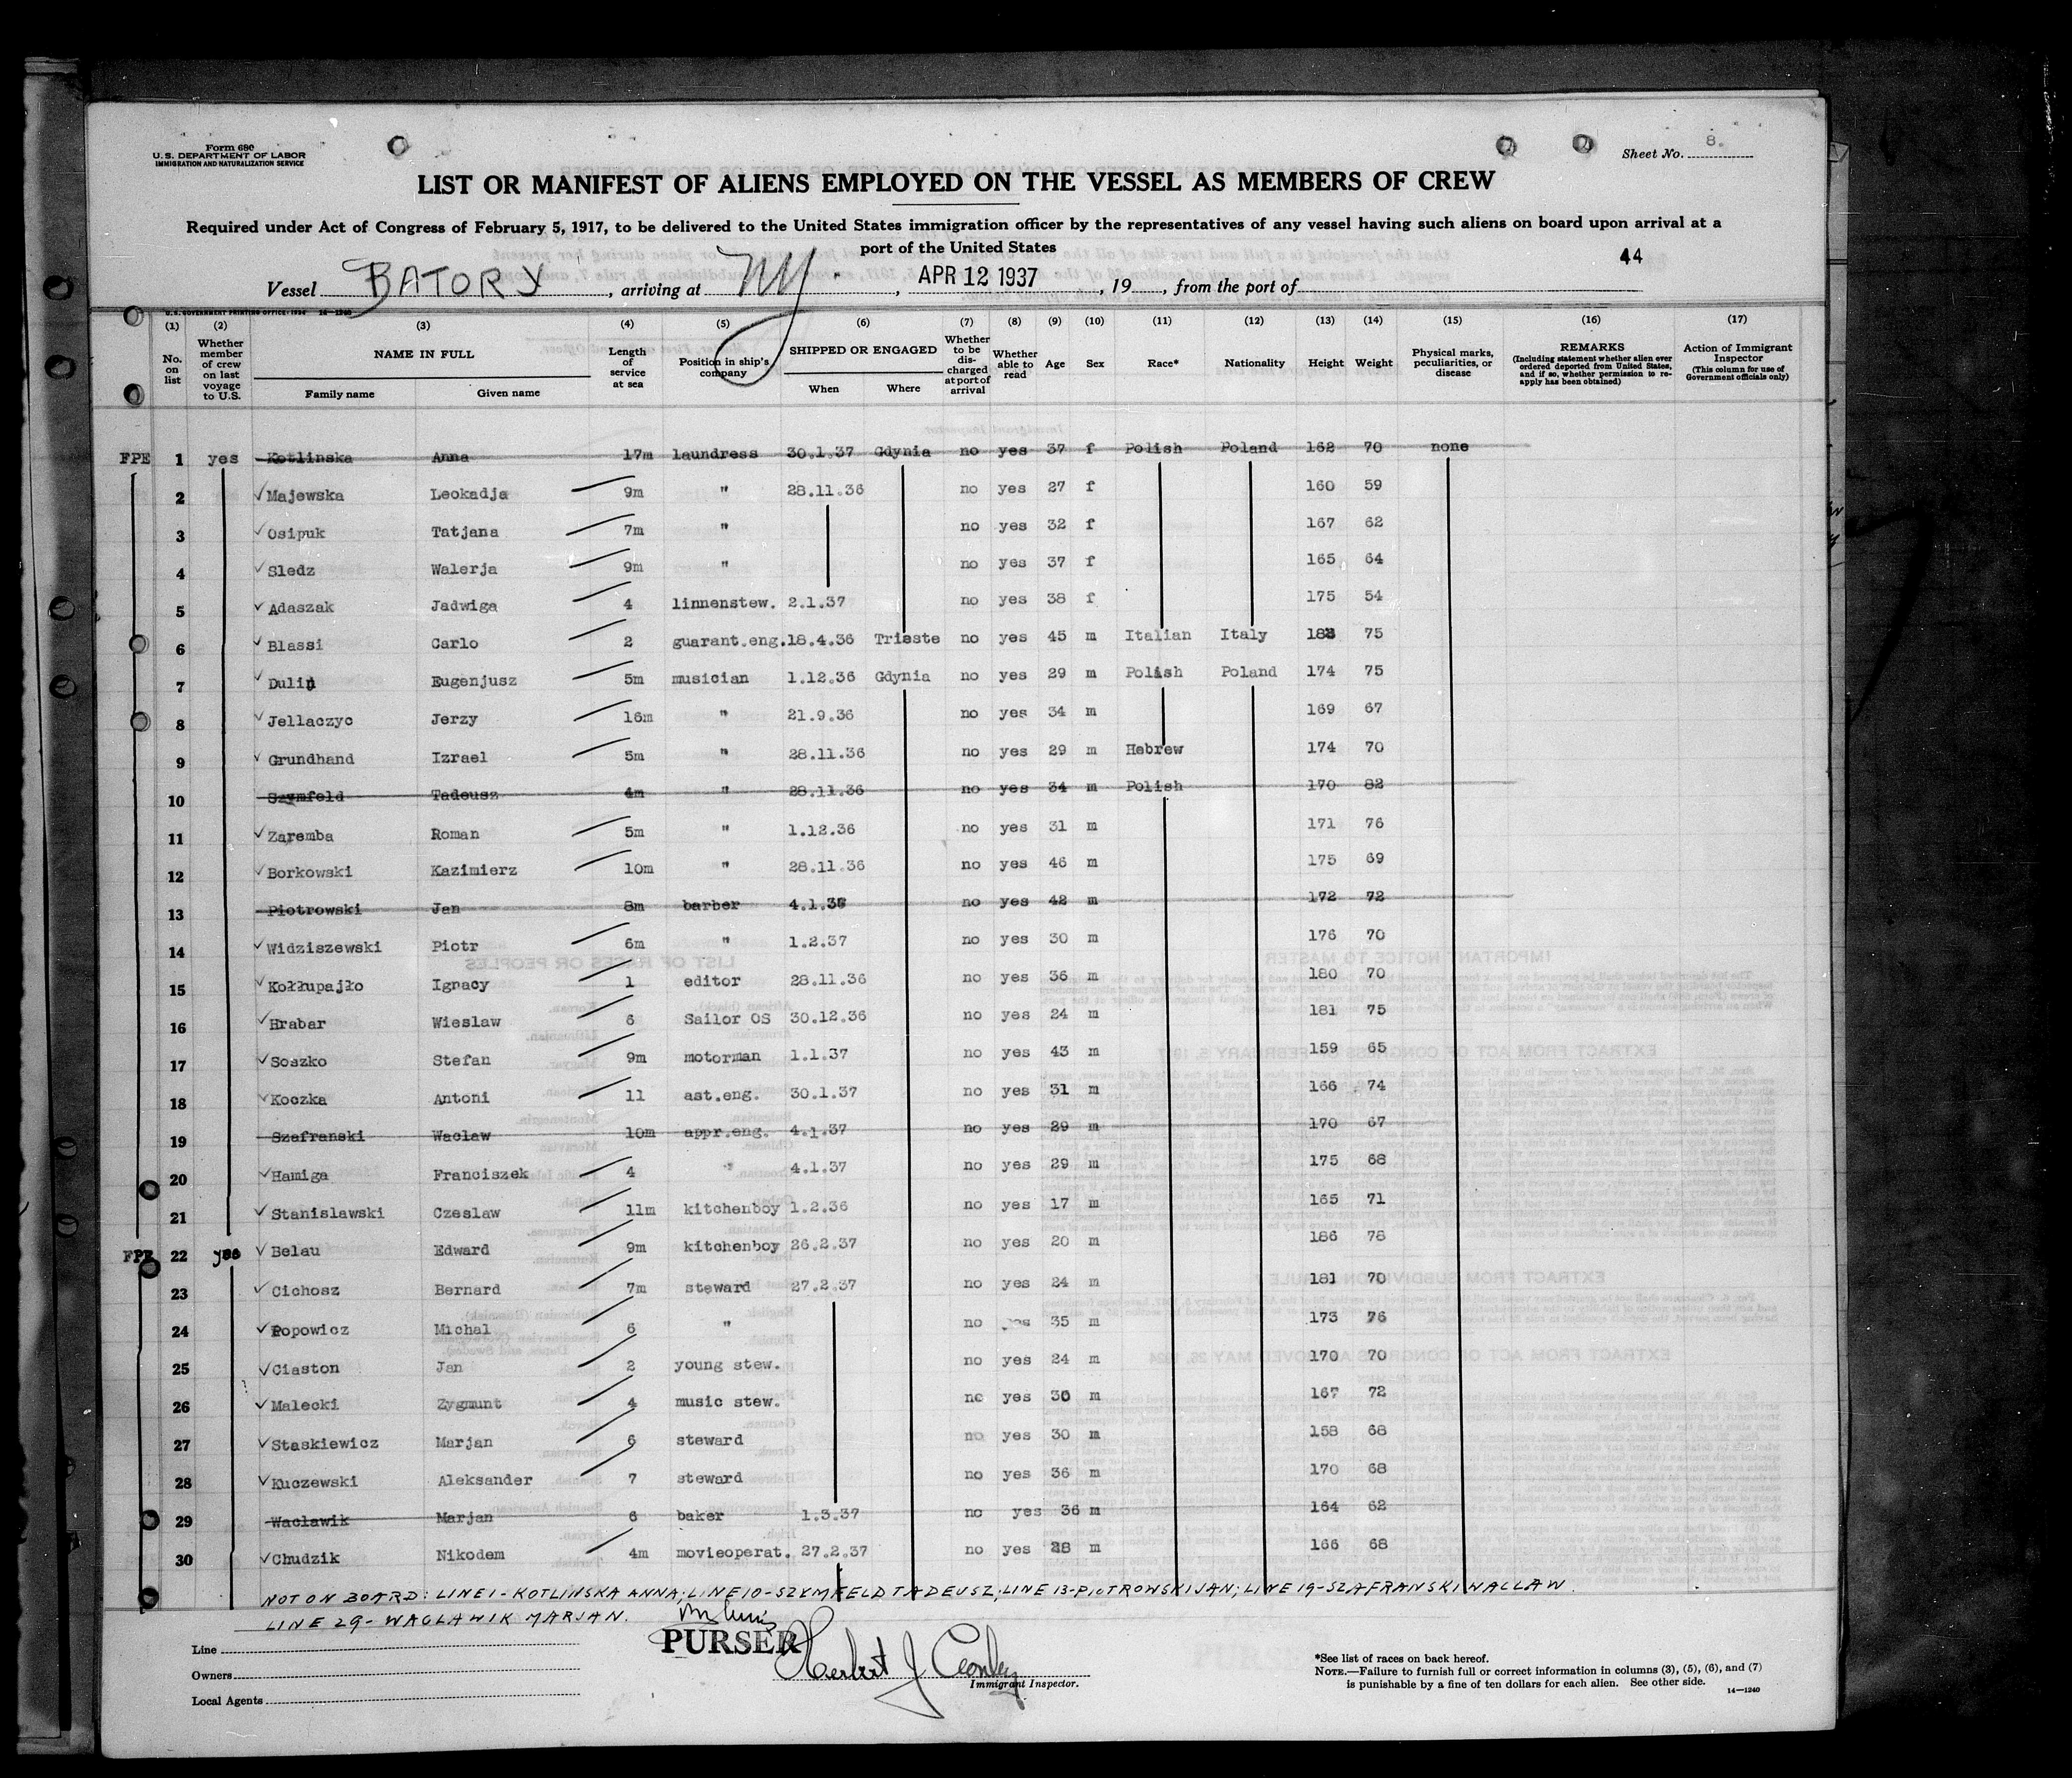 Form 680
U.S. DEPARTMENT OF LABOR
IMMIGRATION AND NATURALIZATION SERVICE
Sheet No. 8.
LIST OR MANIFEST OF ALIENS EMPLOYED ON THE VESSEL AS MEMBERS OF CREW
Required under Act of Congress of February 5, 1917, to be delivered to the United States immigration officer by the representatives of any vessel having such aliens on board upon arrival at a
port of the United States
44
Vessel BATORY, arriving at NY., APR 12 1937, 19, from the port of
U.S. GOVERNMENT PRINTING OFFICE: 1934 14-1240
(1) (2) (3) (4) (5) (6) (7) (8) (9) (10) (11) (12) (13) (14) (15) (16) (17)
No. on list Whether member of crew on last voyage to U.S. NAME IN FULL Family name Given name Length of service at sea Position in ship's company SHIPPED OR ENGAGED When Where Whether to be discharged at port of arrival Whether able to read Age Sex Race* Nationality Height Weight Physical marks, peculiarities, or disease REMARKS (Including statement whether alien ever ordered deported from United States, and if so, whether permission to reapply has been obtained) Action of Immigrant Inspector (This column for use of Government officials only)
FPE 1 yes Kotlinska Anna 17m laundress 30.1.37 Gdynia no yes 37 f Polish Poland 162 70 none
2 Majewska Leokadja 9m " 28.11.36 no yes 27 f 160 59
3 Osipuk Tatjana 7m " no yes 32 f 167 62
4 Sledz Walerja 9m " no yes 37 f 165 64
5 Adaszak Jadwiga 4 linnenstew. 2.1.37 no yes 38 f 175 54
6 Blassi Carlo 2 guarant.eng. 18.4.36 Trieste no yes 45 m Italian Italy 75
7 Eugenjusz 5m musician 1.12.36 Gdynia no yes 29 m Polish Poland 174 75
8 Jellaczyc Jerzy 16m " 21.9.36 no yes 34 m 169 67
9 Grundhand Izrael 5m " 28.11.36 no yes 29 m Hebrew 174 70
10 Szymfeld Tadeusz 4m " 28.11.36 no yes 34 m Polish 170 82
11 Zaremba Roman 5m " 1.12.36 no yes 31 m 171 76
12 Borkowski Kazimierz 10m " 28.11.36 no yes 46 m 175 69
13 Piotrowski Jan 8m barber no yes 42 m 172 72
14 Widziszewski Piotr 6m " 1.2.37 no yes 30 m 176 70
15 Kołłupajło Ignacy 1 editor 28.11.36 no yes 36 m 180 70
16 Hrabar Wieslaw 6 Sailor OS 30.12.36 no yes 24 m 181 75
17 Soszko Stefan 9m motorman 1.1.37 no yes 43 m 159 65
18 Koczka Antoni 11 ast.eng. 30.1.37 no yes 31 m 166 74
19 Szafranski Waclaw 10m appr.eng. 4.1.37 no yes 29 m 170 67
20 Hamiga Franciszek 4 " 4.1.37 no yes 29 m 175 68
21 Stanislawski Czeslaw 11m kitchenboy 1.2.36 no yes 17 m 165 71
FPE 22 yes Belau Edward 9m kitchenboy 26.2.37 no yes 20 m 186 78
23 Cichosz Bernard 7m steward 27.2.37 no yes 24 m 181 70
24 Popowicz Michal 6 " no yes 35 m 173 76
25 Ciaston Jan 2 young stew. no yes 24 m 170 70
26 Malecki Zygmunt 4 music stew. no yes 30 m 167 72
27 Staskiewicz Marjan 6 steward no yes 30 m 158 68
28 Kuczewski Aleksander 7 steward no yes 36 m 170 68
29 Waclawik Marjan 6 baker 1.3.37 no yes 36 m 164 62
30 Chudzik Nikodem 4m movieoperat. 27.2.37 no yes 28 m 166 68
NOT ON BOARD: LINE 1 - KOTLINSKA ANNA; LINE 10 - SZYMFELD TADEUSZ; LINE 13 - PIOTROWSKI JAN; LINE 19 - SZAFRANSKI WACLAW
LINE 29 - WACLAWIK MARJAN.
PURSER
Line
Owners
Local Agents
Herbert J Conley
Immigrant Inspector.
*See list of races on back hereof.
NOTE.—Failure to furnish full or correct information in columns (3), (5), (6), and (7)
is punishable by a fine of ten dollars for each alien. See other side.
14—1240